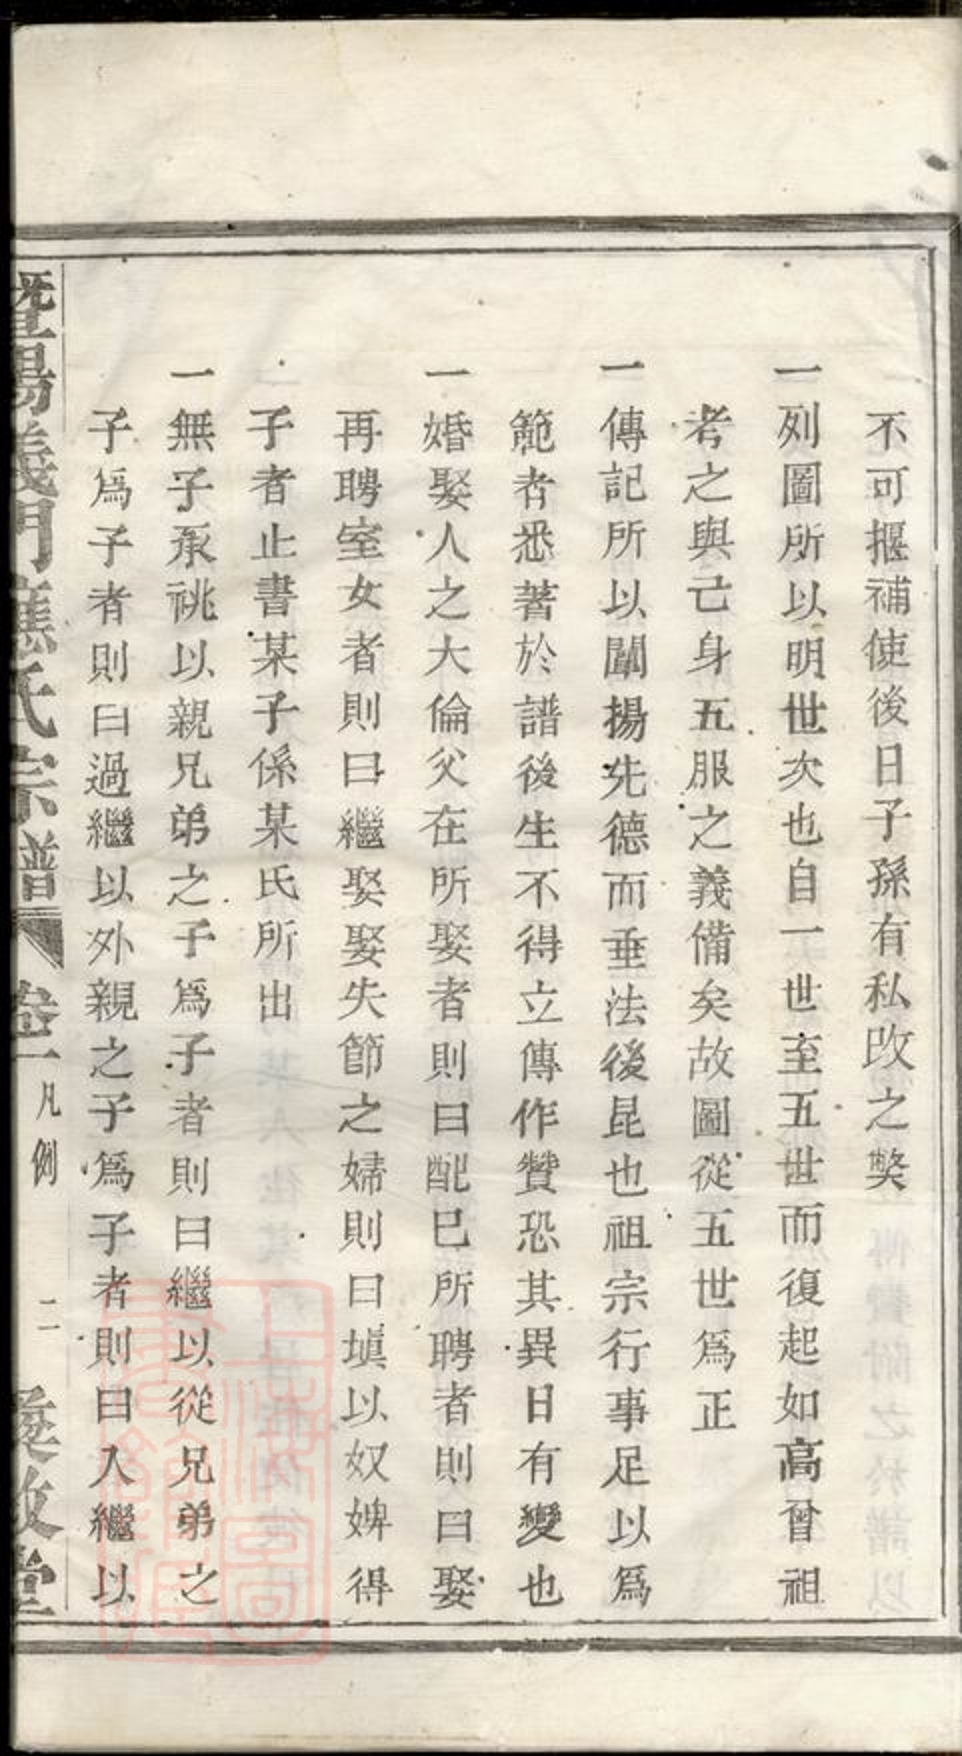 不可揠補使後日子孫有私改之獘
一列圖所以明世次也自一世至五世而復起如高曾祖
考之與己身五服之義備矣故圖從五世為正
一傳記所以闡揚先德而垂法後昆也祖宗行事足以為
範者悉著於譜後生不得立傳作贊恐其異日有變也
一婚娶人之大倫父在所娶者則曰配已所聘者則曰娶
再聘室女者則曰繼娶娶失節之婦則曰塡以奴婢得
子者止書某子係某氏所出
一無子承祧以親兄弟之子為子者則曰繼以從兄弟之
子為子者則曰過繼以外親之子為子者則曰入繼以
暨陽義門 氏宗譜 卷一 凡例 二 堂